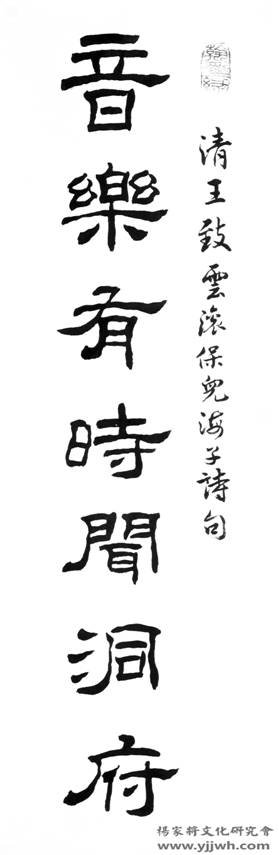 清王致雲滾保兒海子詩句
音樂有時聞洞府
楊家將文化研究會
www.yjjwh.com